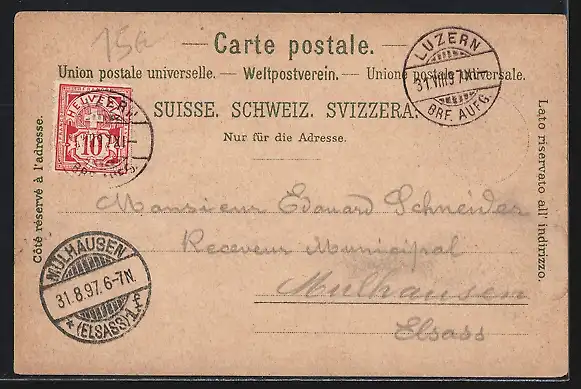 15a
— Carte postale. —
Union postale universelle. — Weltpostverein. — Unione postale universale.
SUISSE. SCHWEIZ. SVIZZERA.
Nur für die Adresse.
Côté réservé à l'adresse.
Lato riservato all' indirizzo.
HELVETIA
10
LUZERN
31.VIII.97.XI
BRF. AUFG.
Monsieur Edouard Schneider
Receveur Municipal
Mulhausen
Elsass
MÜLHAUSEN
31.8.97. 6-7N.
* (ELSASS) 1